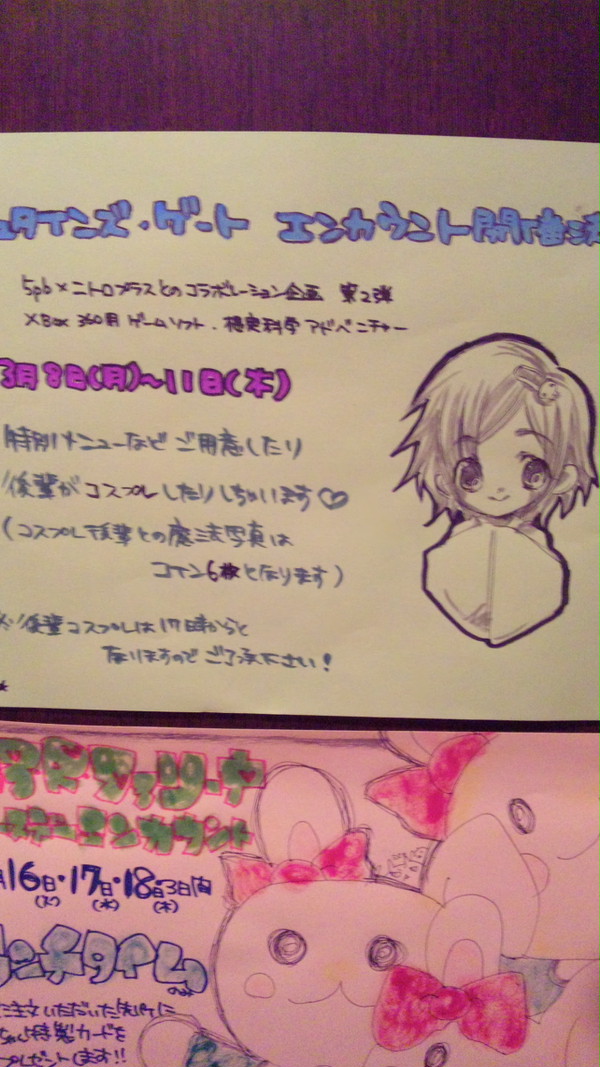 ュタインズ・ゲート エンカウント開催決
5pb×ニトロプラスとのコラボレーション企画 第2弾
XBox 360用 ゲームソフト・想定科学アドベンチャー
3月8日(月)〜11日(木)
特別メニューなどご用意したり
後輩がコスプレしたりしちゃいます♡
(コスプレ後輩との魔法写真は
コイン6枚となります)
※後輩コスプレは17時からと
なりますのでご了承下さい!
エンカウント
16日・17日・18日 3日間
(火) (水) (木)
ランチタイムのみ
ご注文いただいた先パイに
特製カードを
プレゼントします!!